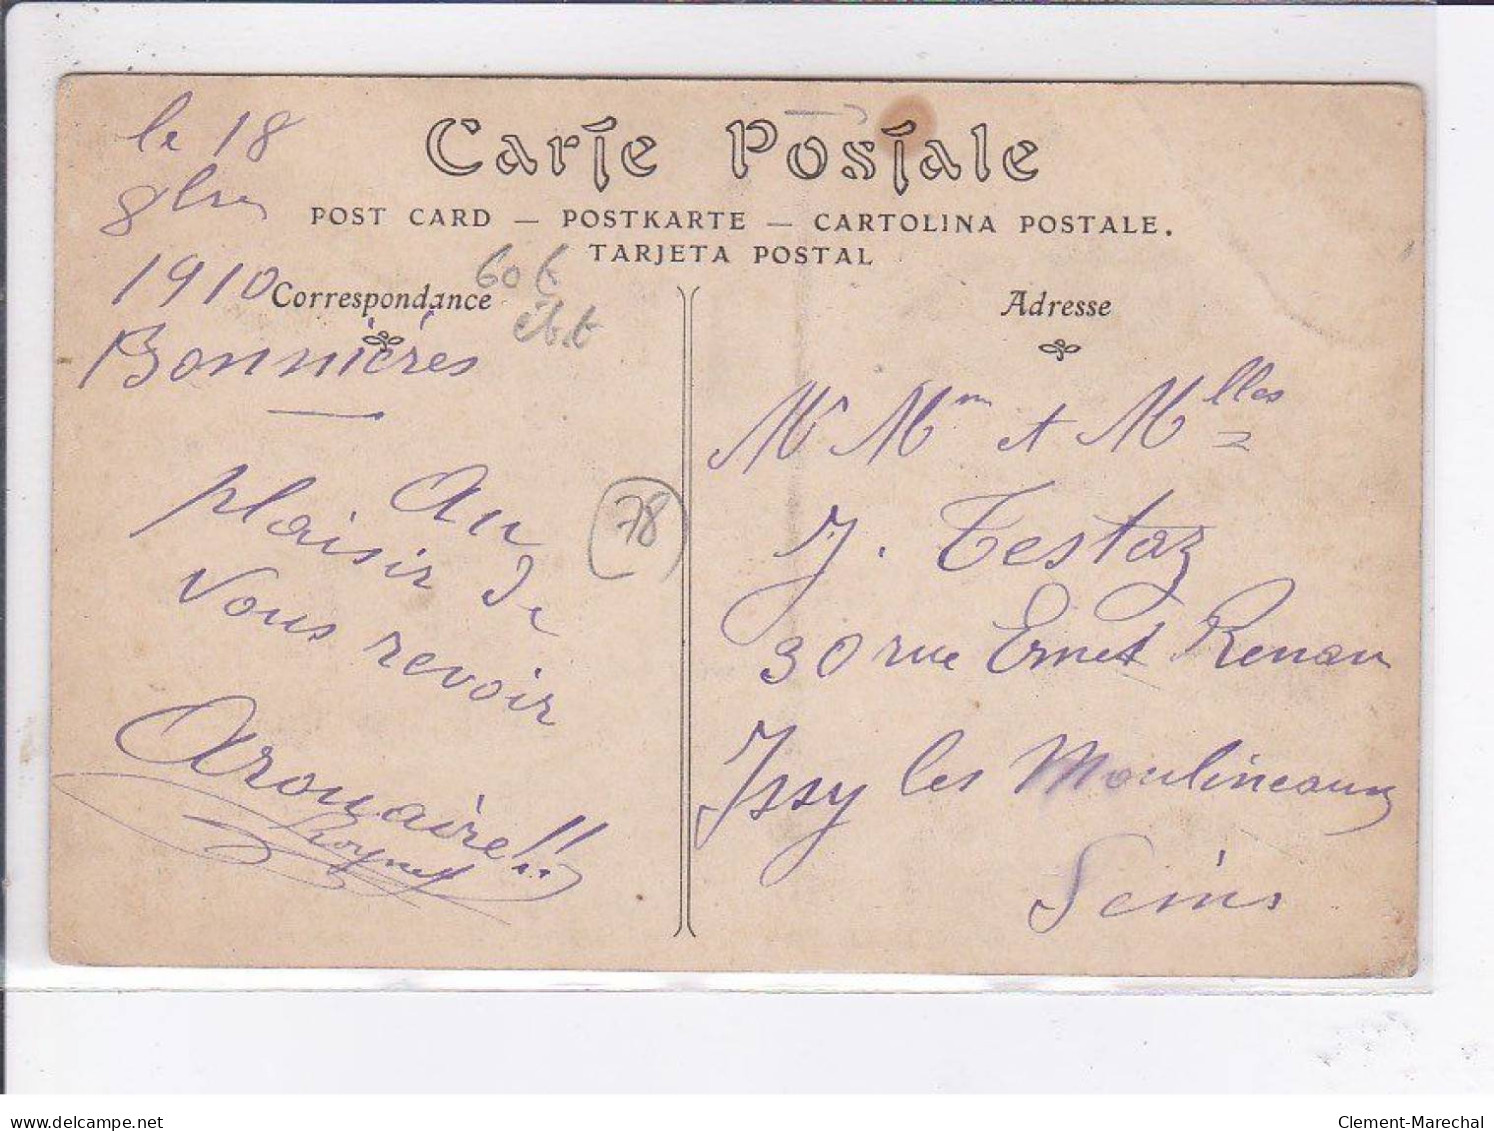 Carte Postale
POST CARD — POSTKARTE — CARTOLINA POSTALE.
TARJETA POSTAL
Correspondance
Adresse
le 18
8bre
1910
Bonnières
Au
plaisir de
vous revoir
Arouaire!!
78
60 €
Mr Mme et Mlles
J. Testaz
30 rue Ernest Renan
Issy les Moulineaux
Seine
delcampe.net
Clement-Marechal